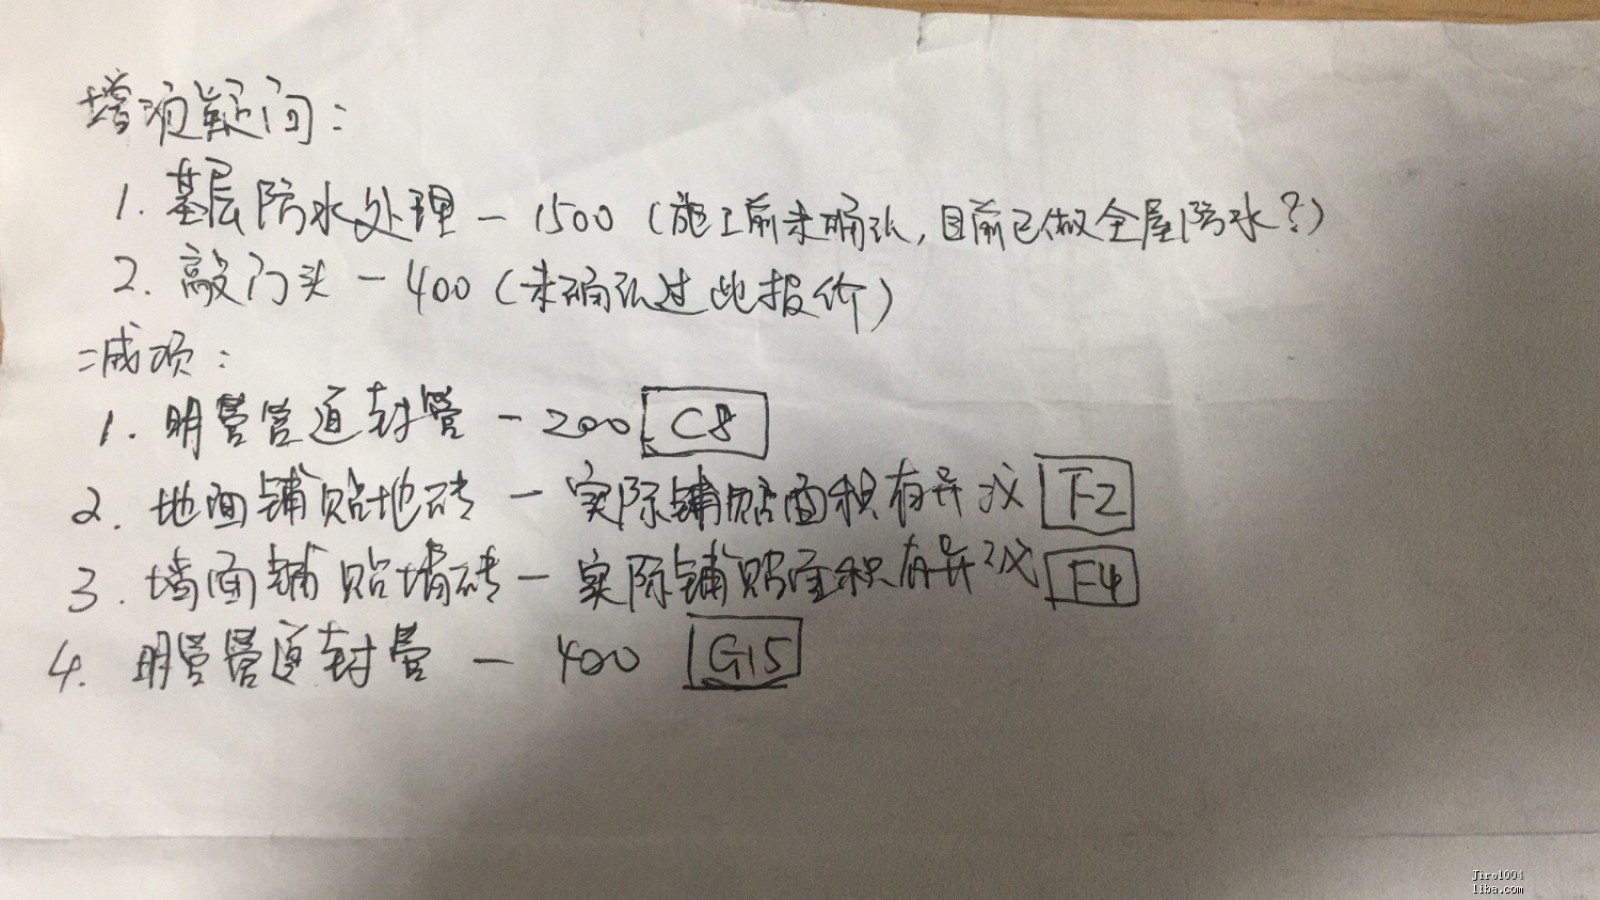 增项疑问：
1. 基层防水处理 － 1500（施工前未确认，目前已做全屋防水？）
2. 敲门头 － 400（未确认过此报价）
减项：
1. 明管管道封管 － 200 C8
2. 地面铺贴地砖 － 实际铺贴面积有异议 F2
3. 墙面铺贴墙砖 － 实际铺贴面积有异议 F4
4. 明管管道封管 － 400 G15
Jiro1004
liba.com